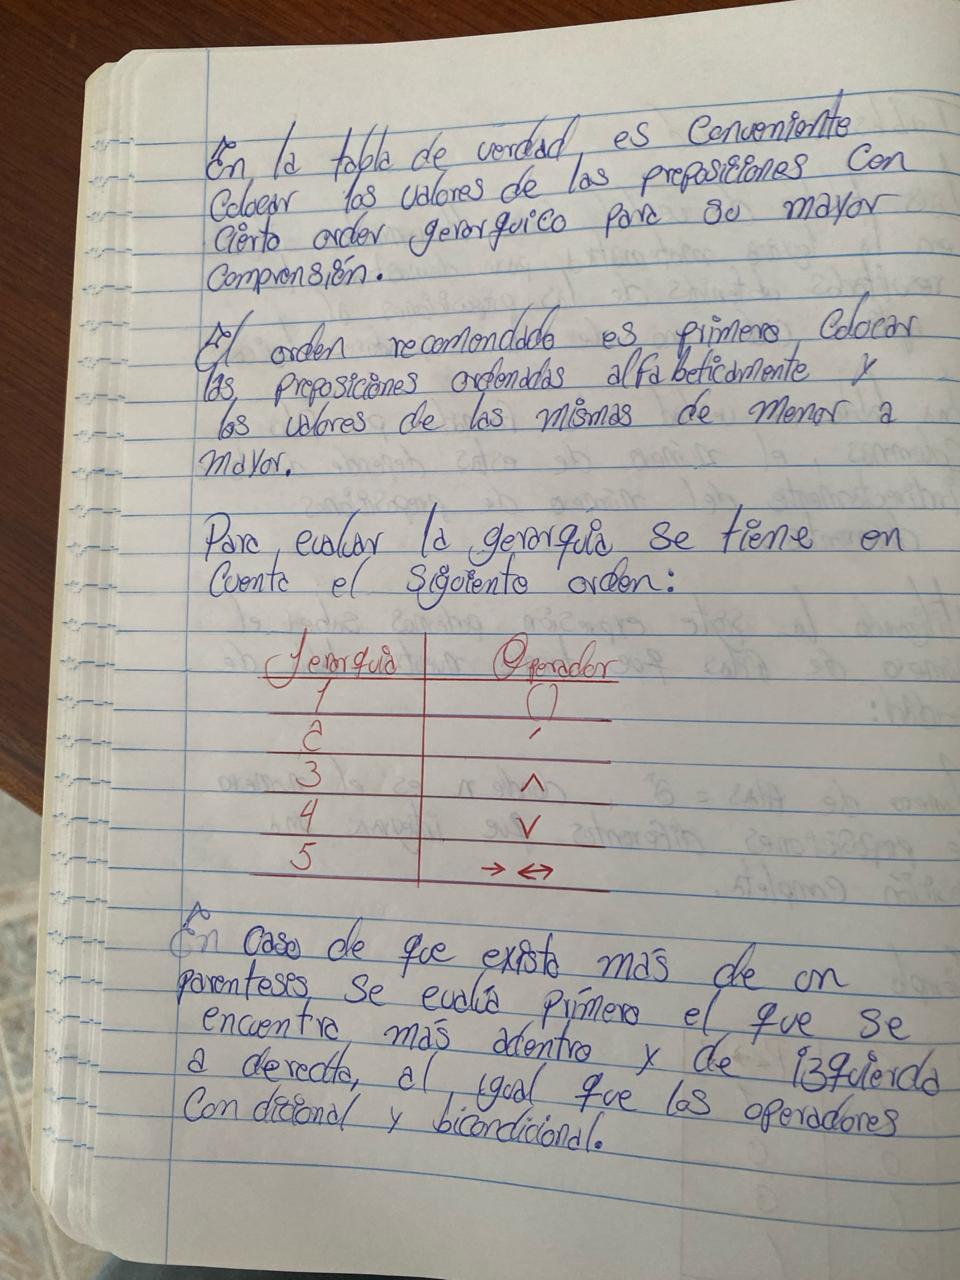 En la tabla de verdad, es conveniente
colocar los valores de las preposiciones con
cierto orden gerarquico para su mayor
comprensión.
El orden recomendado es primero, colocar
las preposiciones ordenadas alfabeticamente y
los valores de las mismas de menor a
mayor.
Para evaluar la gerarquia se tiene en
cuenta el siguiente orden:
Jerarquia Operador
1 ()
2 ′
3 ∧
4 ∨
5 → ↔
En caso de que exista más de un
parenteses, se evalúa primero el que se
encuentra más adentro y de izquierda
a derecha, al igual que los operadores
condicional y bicondicional.